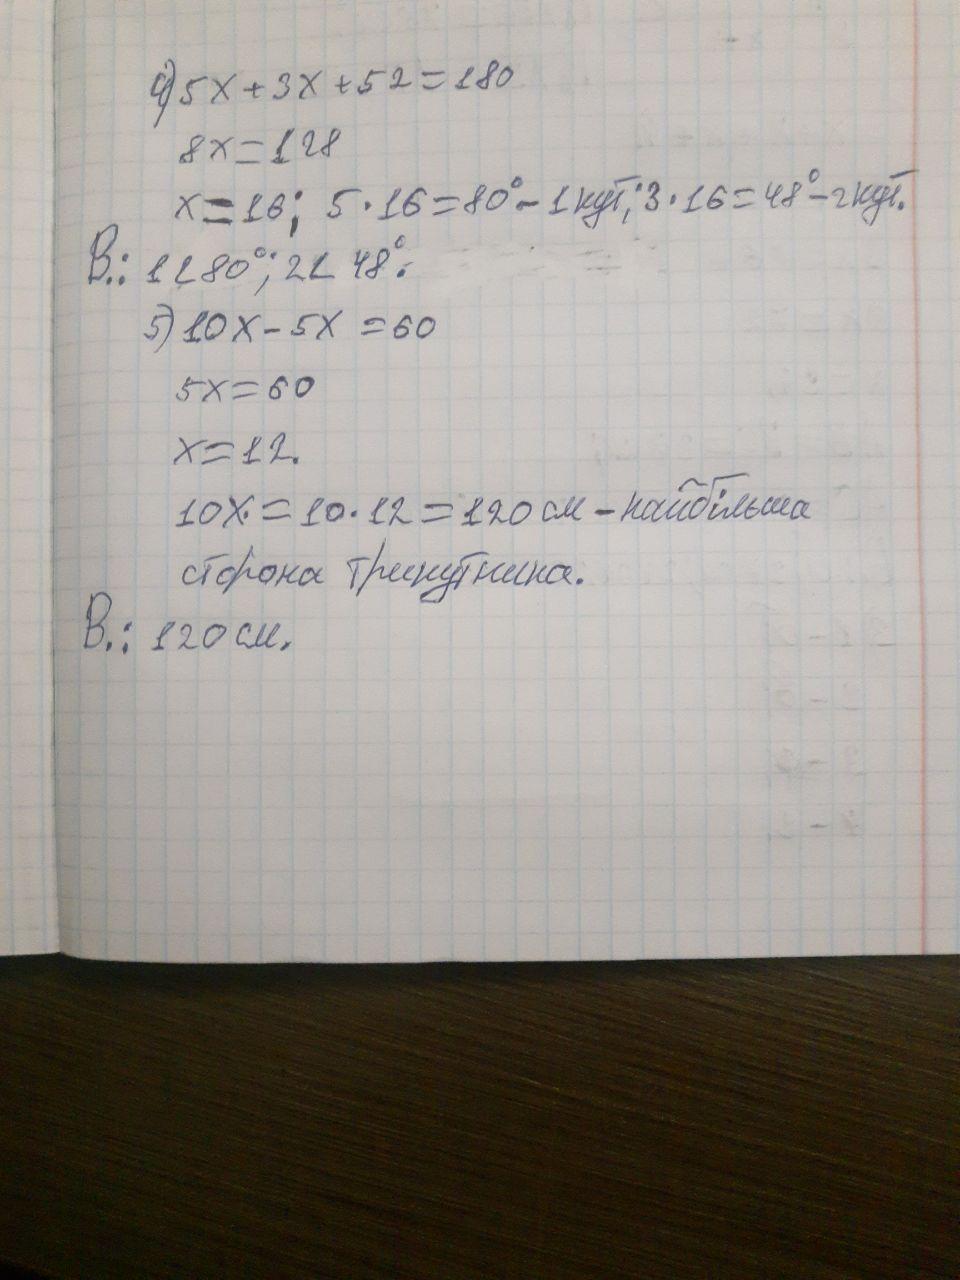 4) 5х+3х+52=180
8х=128
х=16; 5·16=80°-1 кут; 3·16=48°-2 кут.
В.: 1∠80°; 2∠48°.
5) 10х-5х=60
5х=60
х=12.
10х=10·12=120 см - найбільша
сторона трикутника.
В.: 120 см.